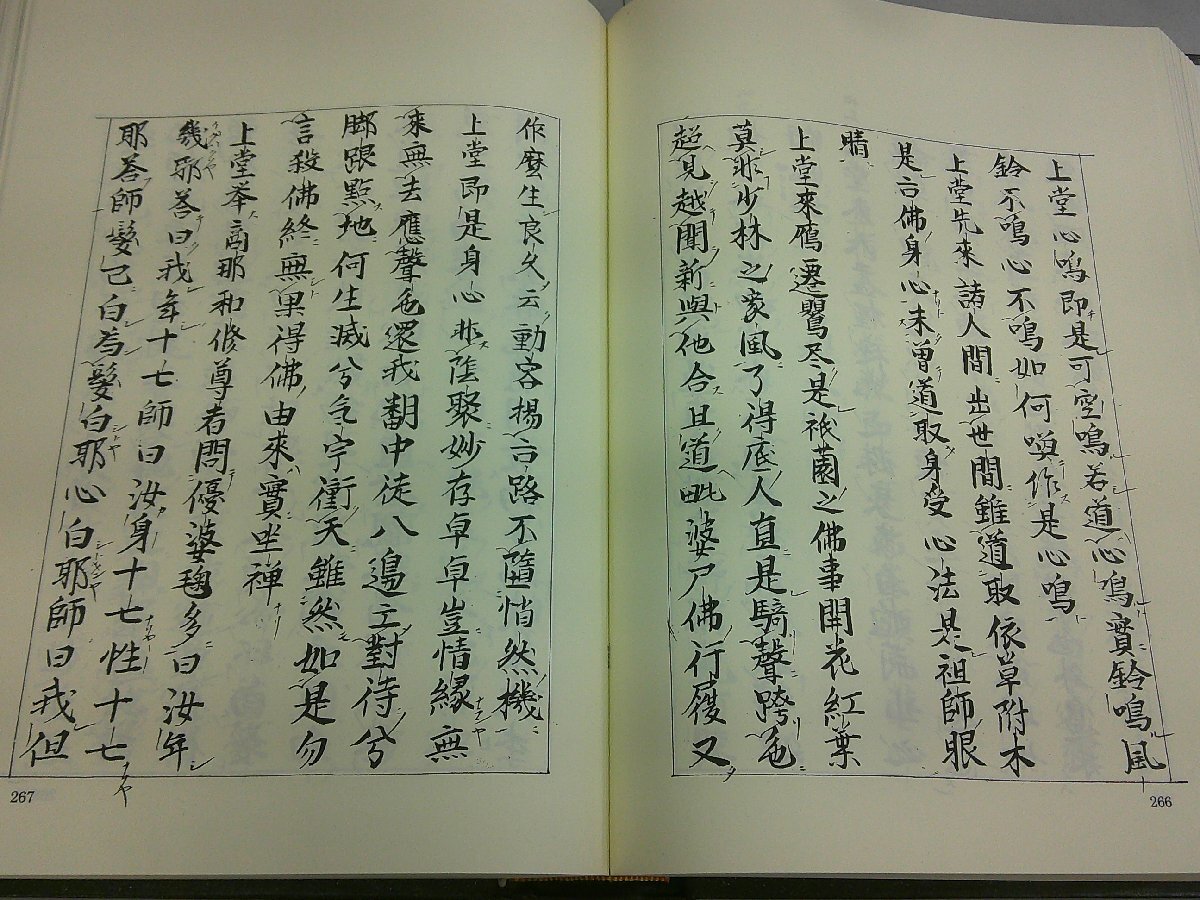 上堂心鳴即是可空鳴若道心鳴實鈴鳴風
鈴不鳴心不鳴如何喚作是心鳴
上堂先來諸人間出世間雖道取依草附木
是言佛身心未曾道取身受心法是祖師眼
睛
上堂來鴈遷鸎尽是祇薗之佛事開花紅葉
莫非少林之家風了得底人直是騎聲跨色
超見越聞新與他合且道毗婆尸佛行履又
作麼生良久云動容揚言路不墮悄然機
上堂即是身心非蔭聚妙存卓卓豈情緣無
來無去應聲色還我翻中徒八邊亡對待兮
脚跟點地何生滅兮气宇衝天雖然如是勿
言殺佛終無果得佛由來實坐禅
上堂挙商那和修尊者問優婆毱多曰汝年
幾耶荅曰我年十七師曰汝身十七性十七
耶荅師髮已白為髮白耶心白耶師曰我但
266
267